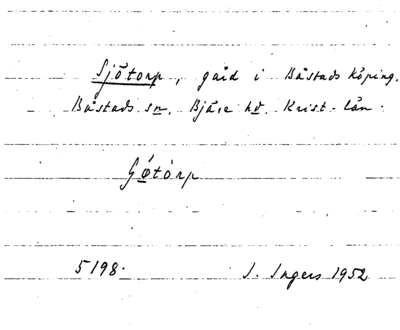 Sjötorp, gård i Båstads köping.
Båstads sn. Bjäre hd. Krist. län.
Sǿtòrp
5198. I. Ingers 1952